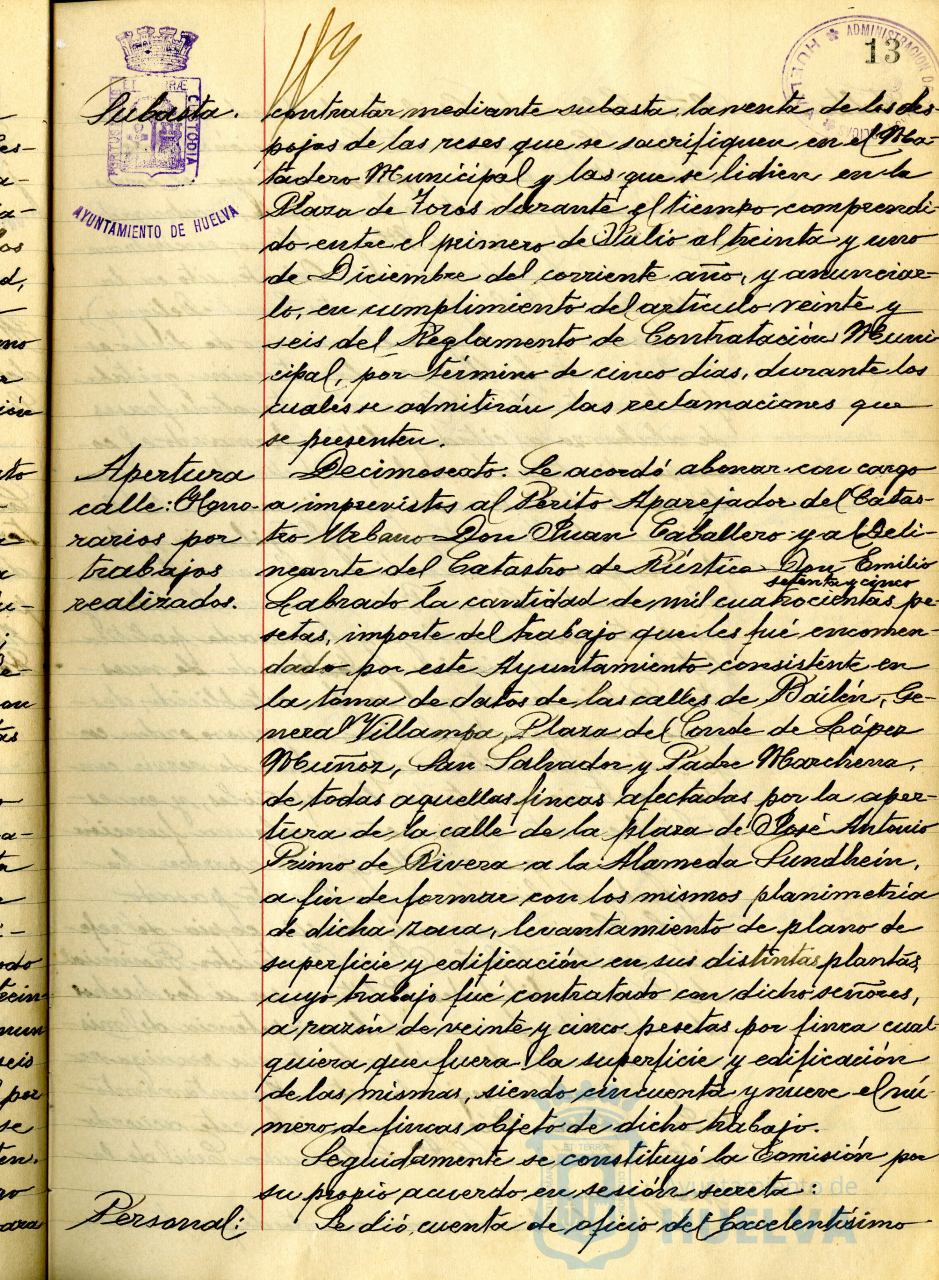 13
ADMINISTRACION DE
HUELVA
CUSTODIA
AYUNTAMIENTO DE HUELVA
Subasta.
contratar mediante subasta, la venta de los des-
pojos de las reses que se sacrifiquen en el Ma-
tadero Municipal y las que se lidien en la
Plaza de Toros durante el tiempo comprendi-
do entre el primero de Julio al treinta y uno
de Diciembre del corriente año, y anunciar-
lo, en cumplimiento del artículo veinte y
seis del Reglamento de Contratación Muni
cipal, por término de cinco dias, durante los
cuales se admitirán las reclamaciones que
se presenten.
Apertura
calle: Hono-
rarios por
trabajos
realizados.
Decimosexto. Se acordó abonar con cargo
a imprevistos al Perito Aparejador del Catas-
tro Urbano Don Juan Caballero y al Deli-
neante del Catastro de Rústica Don Emilio
setenta y cinco
Labrado la cantidad de mil cuatrocientas pe-
setas, importe del trabajo que les fué encomen-
dado por este Ayuntamiento consistente en
la toma de datos de las calles de Bailén, Ge-
neral Villampa, Plaza del Conde de López
Muñoz, San Salvador y Padre Marchena,
de todas aquellas fincas afectadas por la aper-
tura de la calle de la plaza de José Antonio
Primo de Rivera a la Alameda Sundhein,
a fin de formar con los mismos planimetria
de dicha zona, levantamiento de plano de
superficie y edificación en sus distintas plantas,
cuyo trabajo fué contratado con dicho señores,
a razón de veinte y cinco pesetas por finca cual-
quiera que fuera la superficie y edificación
de las mismas, siendo cincuenta y nueve el nú-
mero de fincas objeto de dicho trabajo.
Seguidamente se constituyó la Comisión por
su propio acuerdo en sesión secreta:
Personal:
Se dió cuenta de oficio del Excelentísimo
Ayuntamiento de
HUELVA